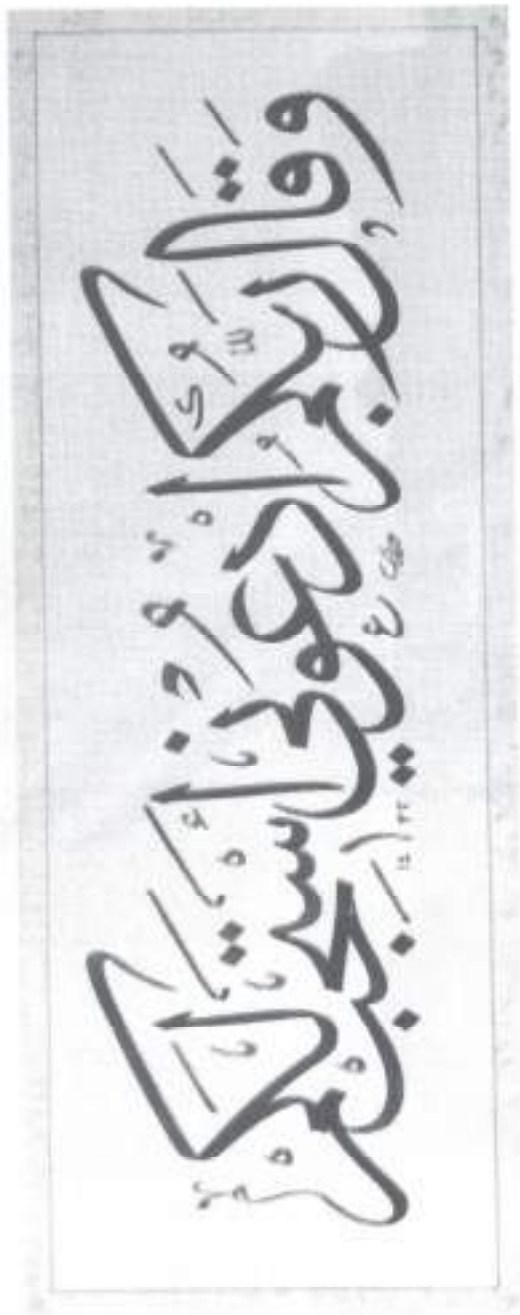 وَقَالَ رَبُّكُمُ ادْعُونِي أَسْتَجِبْ لَكُمْ